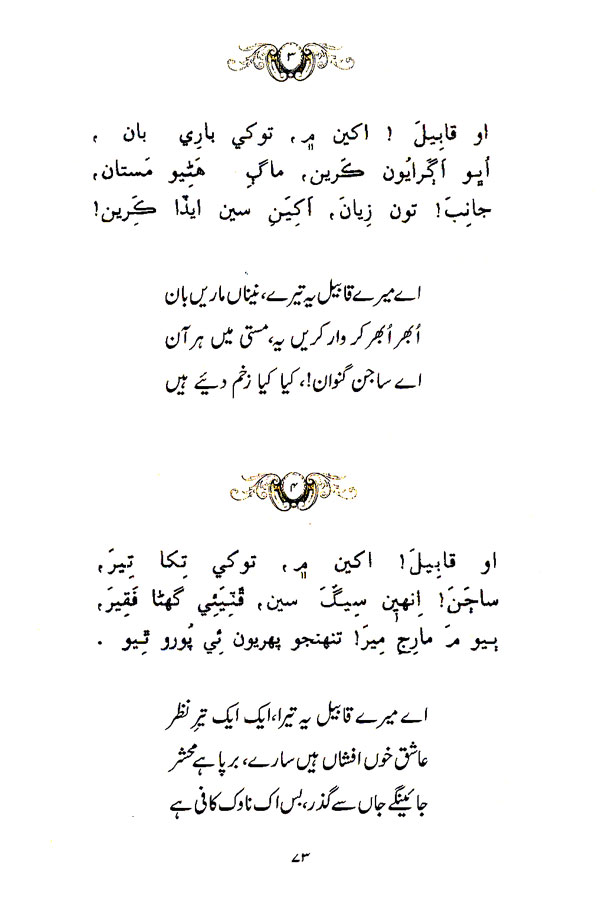 ۳
او قابِيلَ ! اکين ۾، توکي باري بان ،
اُڀو اَڳرايُون ڪَرين، ماڳِ هَڻِيو مَستان،
جانِبَ! تون زِيانَ، اَکِيَنِ سين ايڏا ڪَرِين!
اے میرے قابیل یہ تیرے، نیناں ماریں بان
اُبھر اُبھر کر وار کریں یہ، مستی میں ہر آن
اے ساجن گنوان!، کیا کیا زخم دیئے ہیں
۴
او قابِيلَ! اکين ۾، توکي تِکا تِيرَ،
ساڄَنَ! اِنهِين سِيڱَ سين، ڦَٽِيَئِي گهڻا فَقِيرَ،
ٻِيو مَ مارِجِ مِيرَ! تنهنجو پهريون ئِي پُورو ٿِيو .
اے میرے قابیل یہ تیرا، ایک ایک تیرِ نظر
عاشق خوں افشاں ہیں سارے، برپا ہے محشر
جائینگے جاں سے گذر، بس اک ناوک کافی ہے
۷۳